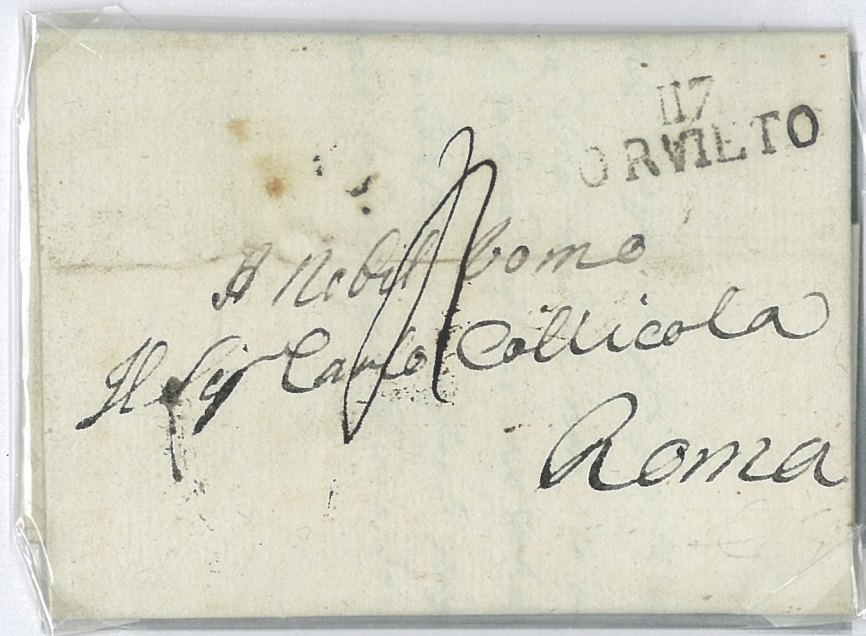 117
ORVIETO
A Nobil Uomo
Il Sigr Carlo Collicola
Roma